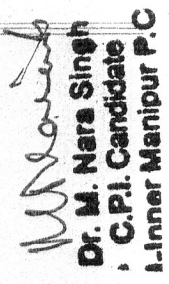 Dr. M. Nara Singh
C.P.I. Candidate
1-Inner Manipur P.C